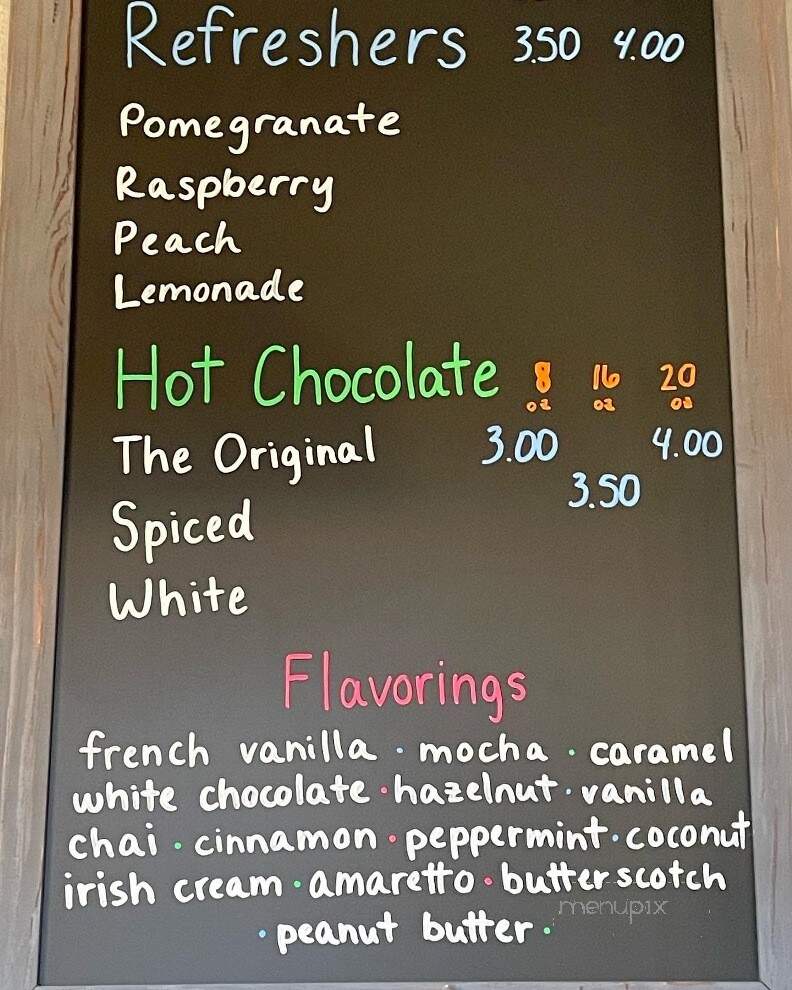 Refreshers 3.50 4.00
Pomegranate
Raspberry
Peach
Lemonade
Hot Chocolate 8 oz 16 oz 20 oz
The Original 3.00 4.00
3.50
Spiced
White
Flavorings
french vanilla · mocha · caramel
white chocolate · hazelnut · vanilla
chai · cinnamon · peppermint · coconut
irish cream · amaretto · butterscotch
menupix
· peanut butter ·